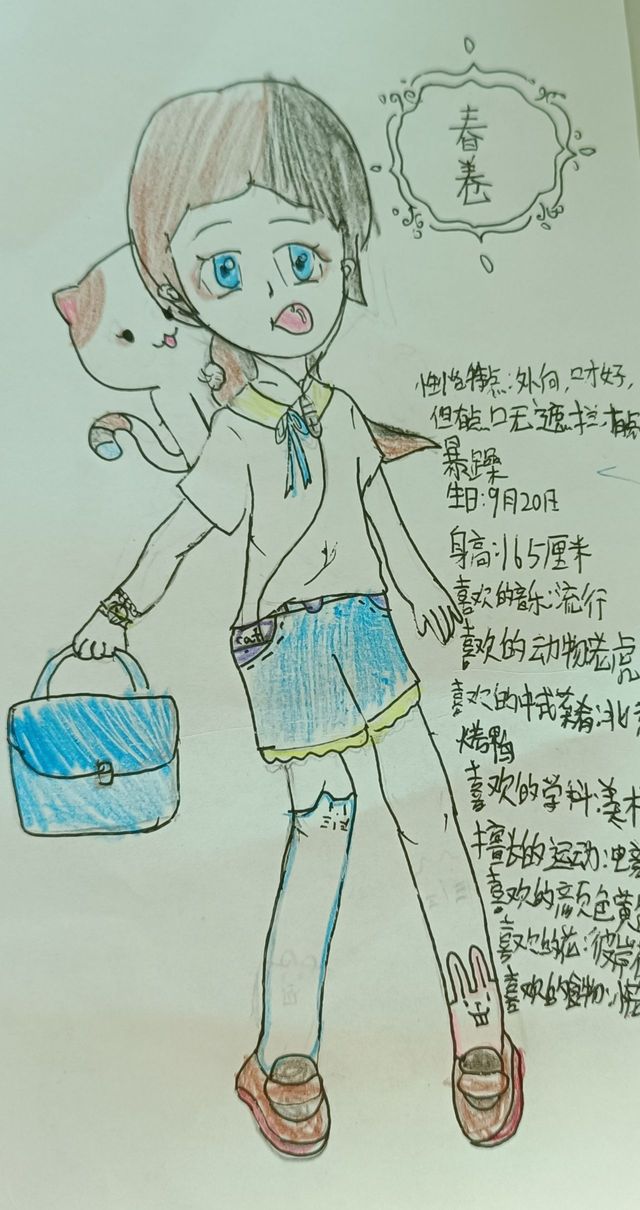 春卷
性格特点:外向,口才好,
但有点口无遮拦,有点
暴躁
生日:9月20日
身高:165厘米
喜欢的音乐:流行
喜欢的动物:老虎
喜欢的中式菜肴:北京
烤鸭
喜欢的学科:美术
擅长的运动:
喜欢的颜色:黄
喜欢的花:彼岸花
喜欢的食物:
cat